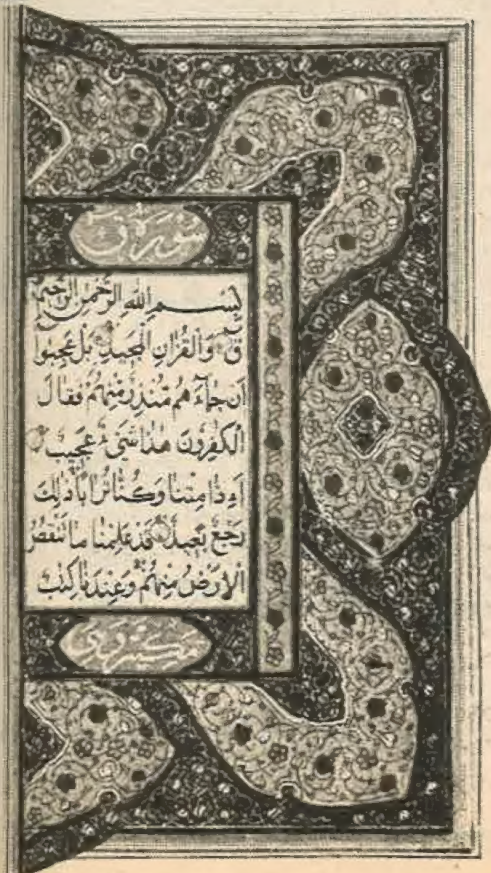 سورة ق
بِسْمِ اللهِ الرَّحْمٰنِ الرَّحِيْمِ
قٓ وَالْقُرْاٰنِ الْمَجِيْدِ بَلْ عَجِبُوْا
اَنْ جَآءَهُمْ مُنْذِرٌ مِنْهُمْ فَقَالَ
الْكٰفِرُوْنَ هٰذَا شَيْءٌ عَجِيْبٌ
ءَاِذَا مِتْنَا وَكُنَّا تُرَابًا ذٰلِكَ
رَجْعٌ بَعِيْدٌ قَدْ عَلِمْنَا مَا تَنْقُصُ
الْاَرْضُ مِنْهُمْ وَعِنْدَنَا كِتٰبٌ